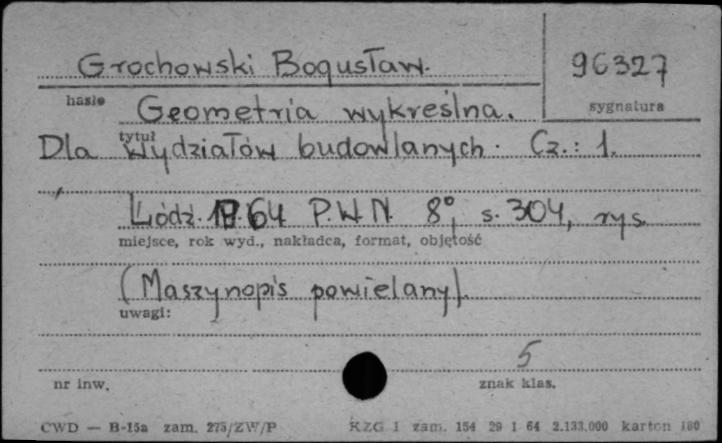 Grochowski Bogusław.
96327
hasło
sygnatura
Geometria wykreślna.
tytuł
Dla wydziałów budowlanych. Cz.: 1.
Łódź. 1964 P.W.N. 8°, s. 304, rys.
miejsce, rok wyd., nakładca, format, objętość
(Maszynopis powielany).
uwagi:
5
nr inw.
znak klas.
CWD — B-15a zam. 275/ZW/P
KZG 1 zam. 154 29 1 64 2.133.000 karton 180